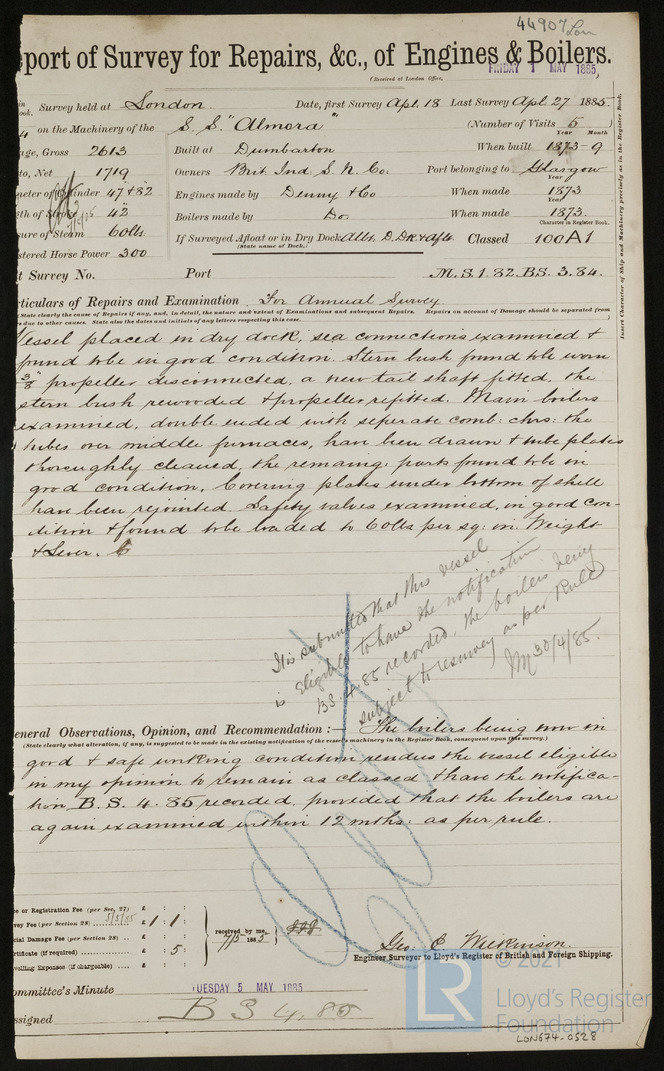 44907 Lon
port of Survey for Repairs, &c., of Engines & Boilers.
(Received at London Office, FRIDAY 1 MAY 1885
Survey held at London. Date, first Survey Apl. 18 Last Survey Apl. 27 1885
on the Machinery of the S. S. "Almora" (Number of Visits 5)
Year Month
age, Gross 2613 Built at Dumbarton When built 1873-9
Net 1719 Owners Brit. Ind. S. N. Co. Port belonging to Glasgow
Year
meter of Cylinder 47 & 82 Engines made by Denny & Co When made 1873
gth of Stroke 42 Boilers made by Do. When made 1873.
Year
Character in Register Book.
sure of Steam 60lbs If Surveyed Afloat or in Dry Dock Classed 100A1
(State name of Dock.)
stered Horse Power 300
t Survey No. Port M.S.1.82.BS.3.84.
ticulars of Repairs and Examination For Annual Survey
(State clearly the cause of Repairs if any, and, in detail, the nature and extent of Examinations and subsequent Repairs. Repairs on account of Damage should be separated from
s due to other causes. State also the dates and initials of any letters respecting this case.
Insert Character of Ship and Machinery precisely as in the Register Book.
Vessel placed in dry dock, sea connections examined &
found to be in good condition. Stern bush found to be worn
3/8" propeller disconnected, a new tail shaft fitted, the
stern bush rewooded & propeller refitted. Main boilers
examined, double ended with seperate comb: chrs: the
tubes over middle furnaces, have been drawn & tube plates
thoroughly cleaned, the remaing: parts found to be in
good condition. Covering plates under bottom of shell
have been rejointed. Safety valves examined, in good con-
dition & found to be loaded to 60lbs per sq: in. Weight
& Lever.
It is submitted that this vessel
is eligible to have the notification
BS. 4.85 recorded, the boilers being
subject to resurvey as per Rule
30/4/85.
eneral Observations, Opinion, and Recommendation :— The boilers being now in
(State clearly what alteration, if any, is suggested to be made in the existing notification of the vessel's machinery in the Register Book, consequent upon this survey.)
good & safe working condition renders the vessel eligible
in my opinion to remain as classed & have the notifica-
tion B.S. 4.85 recorded, provided that the boilers are
again examined within 12 mths: as per rule.
e or Registration Fee (per Sec. 27) £ : :
vey Fee (per Section 28) £ 1 : 1 :
cial Damage Fee (per Section 28) £ : :
rtificate (if required) £ : 5 :
velling Expenses (if chargeable) £ : :
5/5/85
received by me,
7/5 1885
Geo. C. Wilkinson
Engineer Surveyor to Lloyd's Register of British and Foreign Shipping.
ommittee's Minute TUESDAY 5 MAY 1885
ssigned B S 4.85
LR
© 2021
Lloyd's Register
Foundation
LDN674-0528